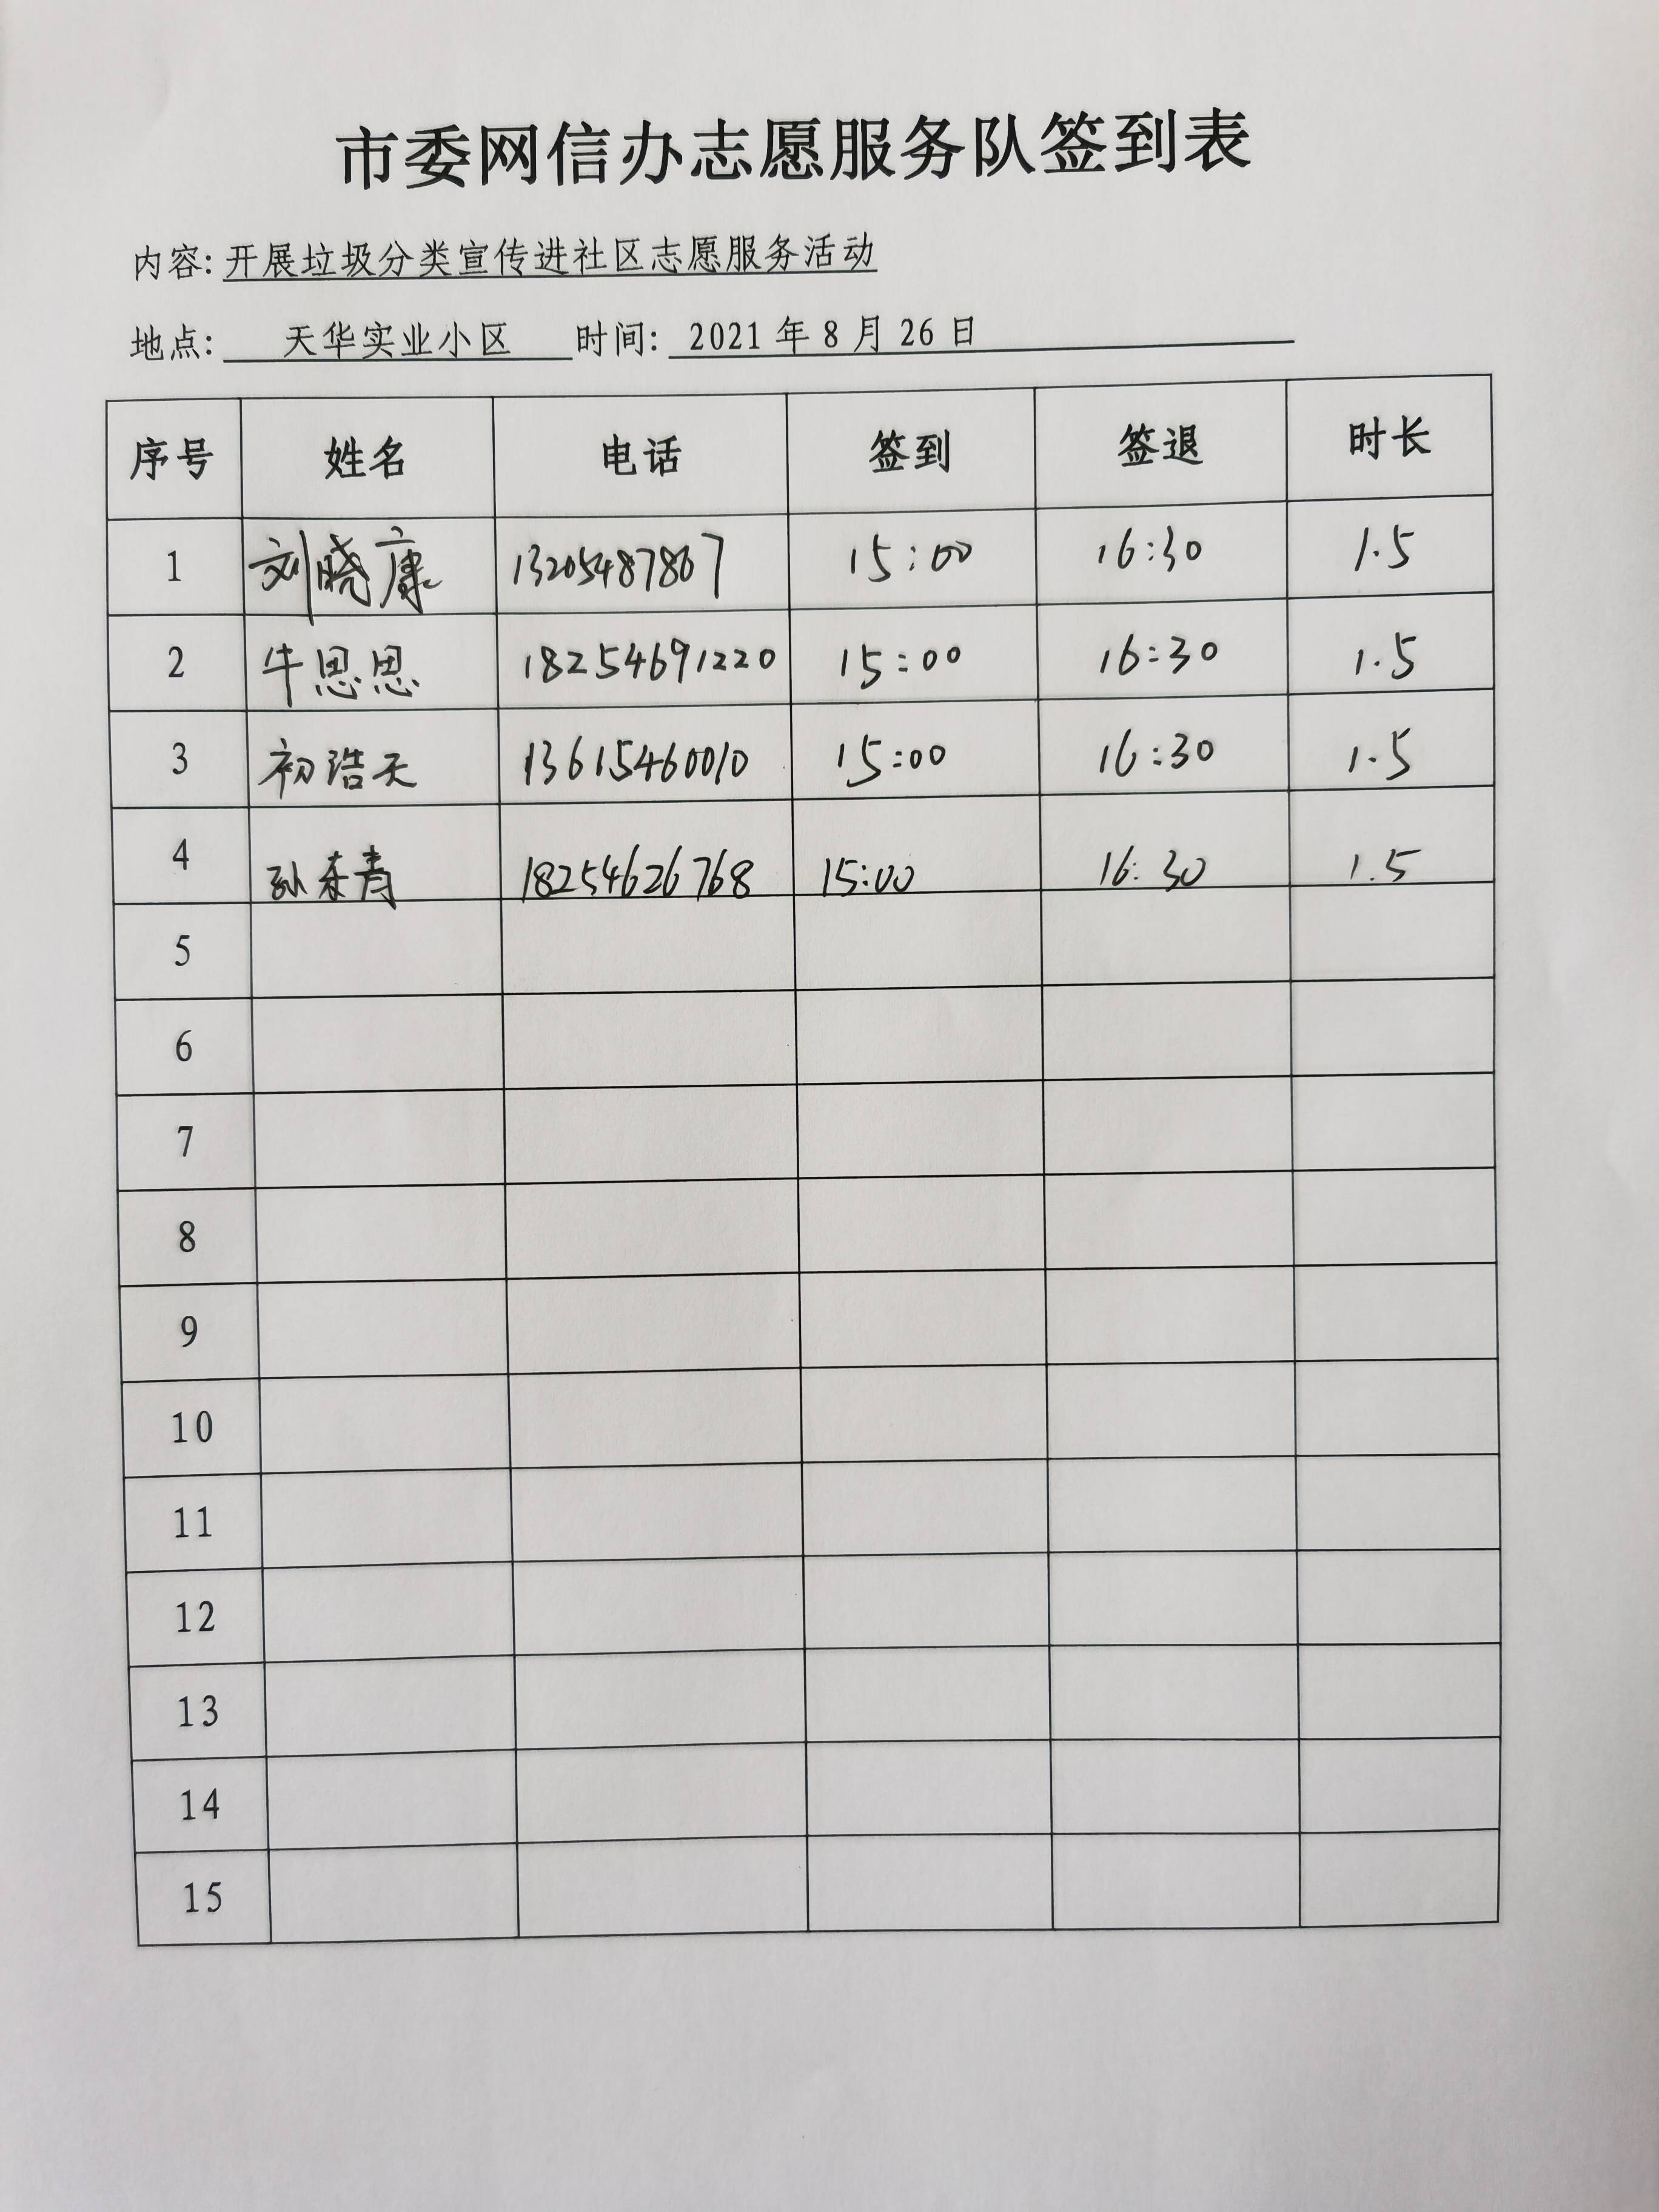 市委网信办志愿服务队签到表
内容: 开展垃圾分类宣传进社区志愿服务活动
地点: 天华实业小区 时间: 2021年8月26日
序号 姓名 电话 签到 签退 时长
1 刘晓康 13205487867 15:00 16:30 1.5
2 牛思思 18254691220 15:00 16:30 1.5
3 初浩天 13615460010 15:00 16:30 1.5
4 孙东青 18254626768 15:00 16:30 1.5
5
6
7
8
9
10
11
12
13
14
15